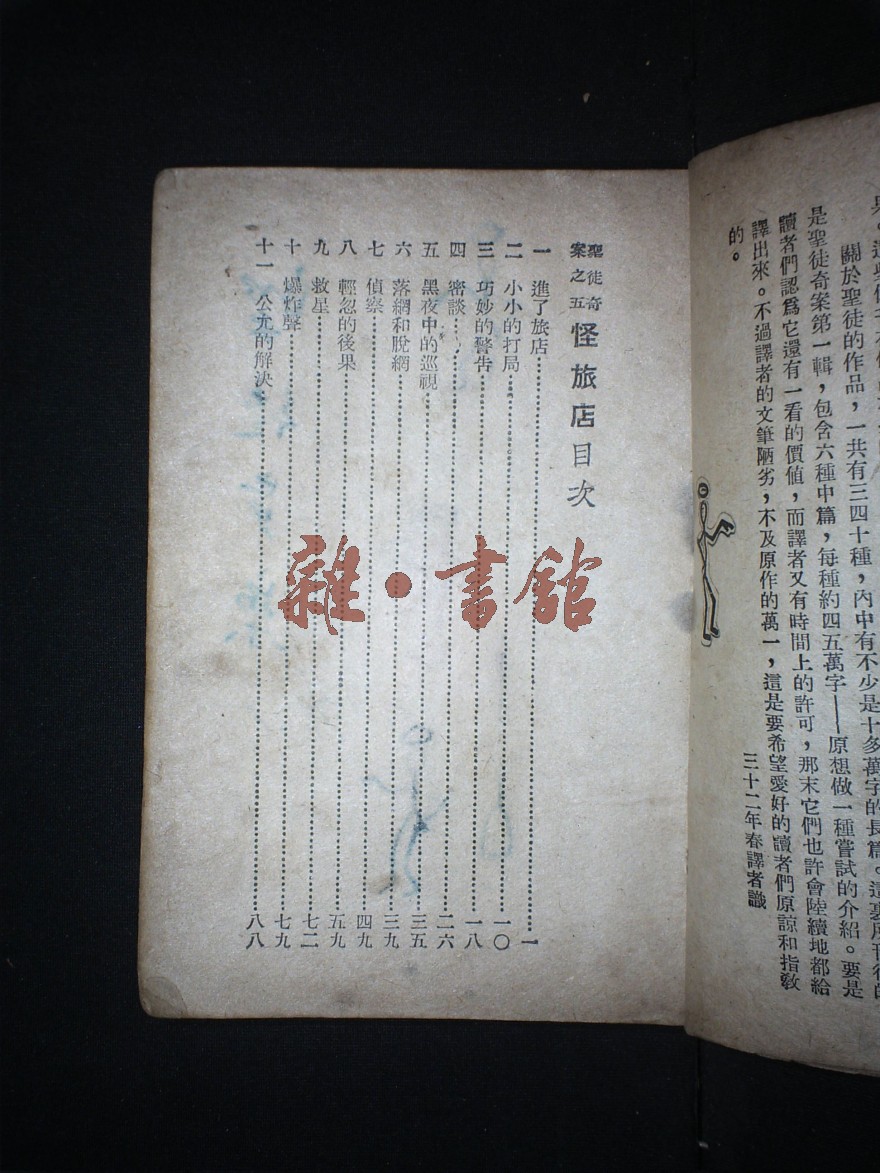 關於聖徒的作品，一共有三四十種，內中有不少是十多萬字的長篇。這裏
是聖徒奇案第一輯，包含六種中篇，每種約四五萬字——原想做一種嘗試的介紹。要是
讀者們認為它還有一看的價値，而譯者又有時間上的許可，那末它們也許會陸續地都給
譯出來。不過譯者的文筆陋劣，不及原作的萬一，這是要希望愛好的讀者們原諒和指敎
的。
三十二年春譯者識
聖徒奇案之五 怪旅店目次
一 進了旅店……一
二 小小的打局……一〇
三 巧妙的警告……一八
四 密談……二六
五 黑夜中的巡視……三五
六 落網和脫網……三九
七 偵察……四九
八 輕忽的後果……五九
九 救星……七二
十 爆炸聲……七九
十一 公允的解決……八八
雜·書館